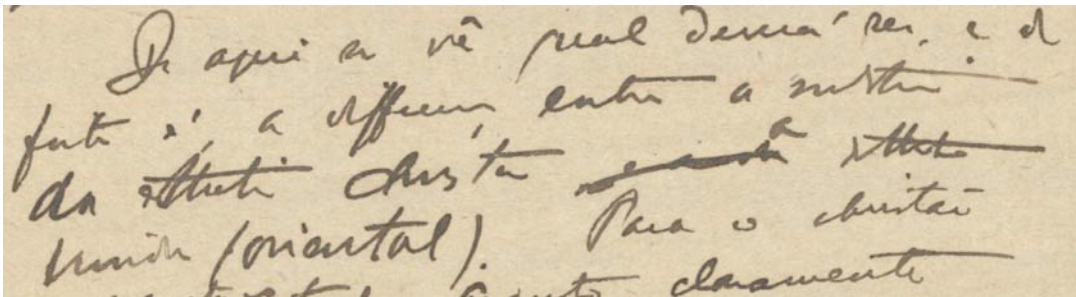 De aqui se vê qual deverá ser, e de
facto é, a differença entre a
da esthetica christã e a esthetica
(oriental). Para o christão
claramente